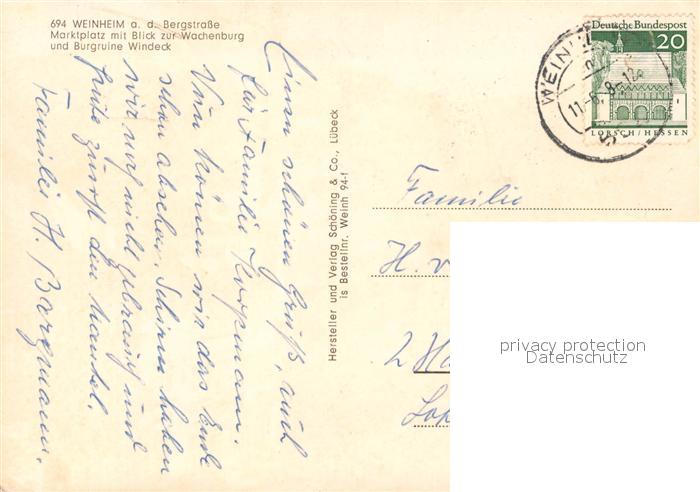 694 WEINHEIM a. d. Bergstraße
Marktplatz mit Blick zur Wachenburg
und Burgruine Windeck
Einen schönen Gruß, auch
für Familie
Nun können wir das Ende
schon absehen. Schirm haben
wir noch nicht gebraucht und
heute zuerst den Mantel.
Familie H. Borgmann.
Hersteller und Verlag Schöning & Co., Lübeck
is Bestellnr. Weinh 94-f
Deutsche Bundespost
20
LORSCH/HESSEN
WEINHEIM
11.-6.
Familie
H. v
2 Ha
Lok
privacy protection
Datenschutz